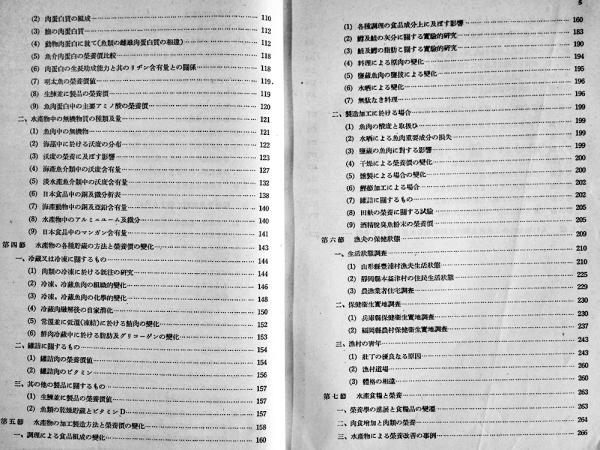 (2) 肉蛋白質の組成 110
(3) 鮑の肉蛋白質 112
(4) 動物肉蛋白に就て(魚類の雌雄肉蛋白質の相違) 112
(5) 魚介肉蛋白質の榮養價比較 118
(6) 肉蛋白質の生長助成能力と其のリヂン含有量との關係 118
(7) 明太魚の榮養價値 119
(8) 生鰊並に製品の榮養價 119
(9) 魚肉蛋白中の主要アミノ酸の榮養價 120
二、水産物中の無機物質の種類及量 121
(1) 魚肉中の無機物 121
(2) 海藻中に於ける沃度の分布 122
(3) 沃度の榮養に及ぼす影響 122
(4) 海産魚介類中の沃度含有量 127
(5) 淡水産魚介類中の沃度含有量 132
(6) 日本食品中の銅及鐵分析表 138
(7) 海産動物中の銅及亜鉛含有量 140
(8) 水産物中のアルミニューム及鐵分 140
(9) 日本食品中のマンガン含有量 141
第四節 水產物の各種貯藏の方法と榮養價の變化 143
一、冷藏又は冷凍に關するもの 144
(1) 肉類の冷凍に於ける近往の硏究 144
(2) 冷凍、冷藏魚肉の組織的變化 146
(3) 冷凍、冷藏魚肉の化學的變化 148
(4) 冷藏肉融解後の自家消化 150
(5) 常溫並に低溫(凍結)に於ける鯖肉の變化 152
(6) 鮮肉冷藏中に於ける脂肪及グリコーゲンの變化 153
二、罐詰に關するもの 154
(1) 罐詰肉の榮養價値 154
(2) 罐詰肉のビタミン 156
三、其の他の製品に關するもの 157
(1) 生鰊並に製品の榮養價値 157
(2) 魚類の乾燥貯藏とビタミンD 157
第五節 水產物の加工製造方法と榮養價の變化 158
一、調理による食品組成の變化 160
5
(1) 各種調理の食品成分上に及ぼす影響 160
(2) 鱈及鮭の灰分に關する實驗的硏究 183
(3) 鮭及鱈の脂肪に關する實驗的硏究 190
(4) 料理による原肉の變化 194
(5) 鹽藏魚肉の鹽拔による變化 195
(6) 水晒による變化 196
(7) 無駄なき料理 196
二、製造加工に於ける場合 199
(1) 魚肉の酸度と取扱ひ 199
(2) 水晒による魚肉重要成分の損失 199
(3) 鹽藏の魚肉に對する影響 199
(4) 干燥による榮養價の變化 200
(5) 燻製による場合の變化 200
(6) 鰹節加工による場合 202
(7) 罐詰に關するもの 205
(8) 田麩の榮養に關する試驗 205
(9) 酒精脫臭魚粉末の榮養價 205
第六節 漁夫の保健狀態 209
一、生活狀態調査 210
(1) 山形縣豊浦村漁夫生活狀態 210
(2) 靜岡縣本益津村の住民生活狀態 225
(3) 農漁業者住宅調査 229
二、保健衞生實地調査 230
(1) 兵庫縣保健衞生實地調査 230
(2) 福岡縣農村保健衞生實地調査 237
三、漁村の靑年 243
(1) 壯丁の優良なる原因 243
(2) 漁村道場 260
(3) 體格の相違 260
第七節 水產食糧と榮養 263
一、榮養學の進展と食糧品の變遷 263
二、肉食增加と肉類の榮養 264
三、水產物による榮養改善の事例 266